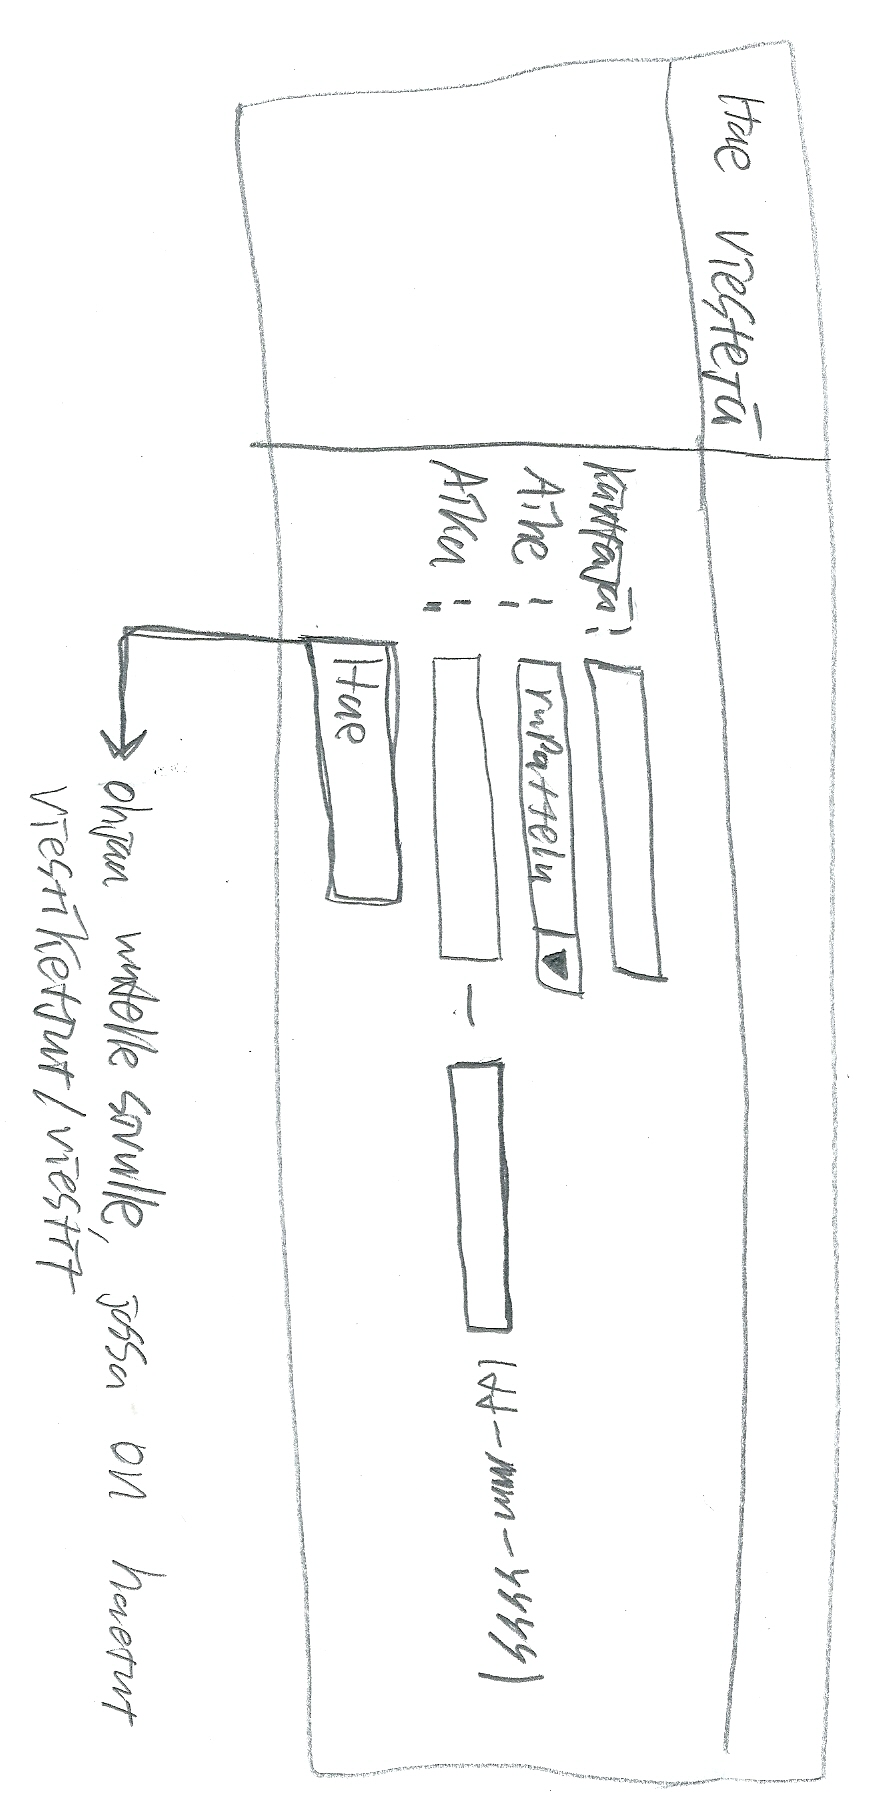 Hae viestejä
Käyttäjä:
Aihe : rupattelu
Aika : – (dd-mm-yyyy)
Hae
ohjaa uudelle sivulle, jossa on haetut
viestiketjut/viestit